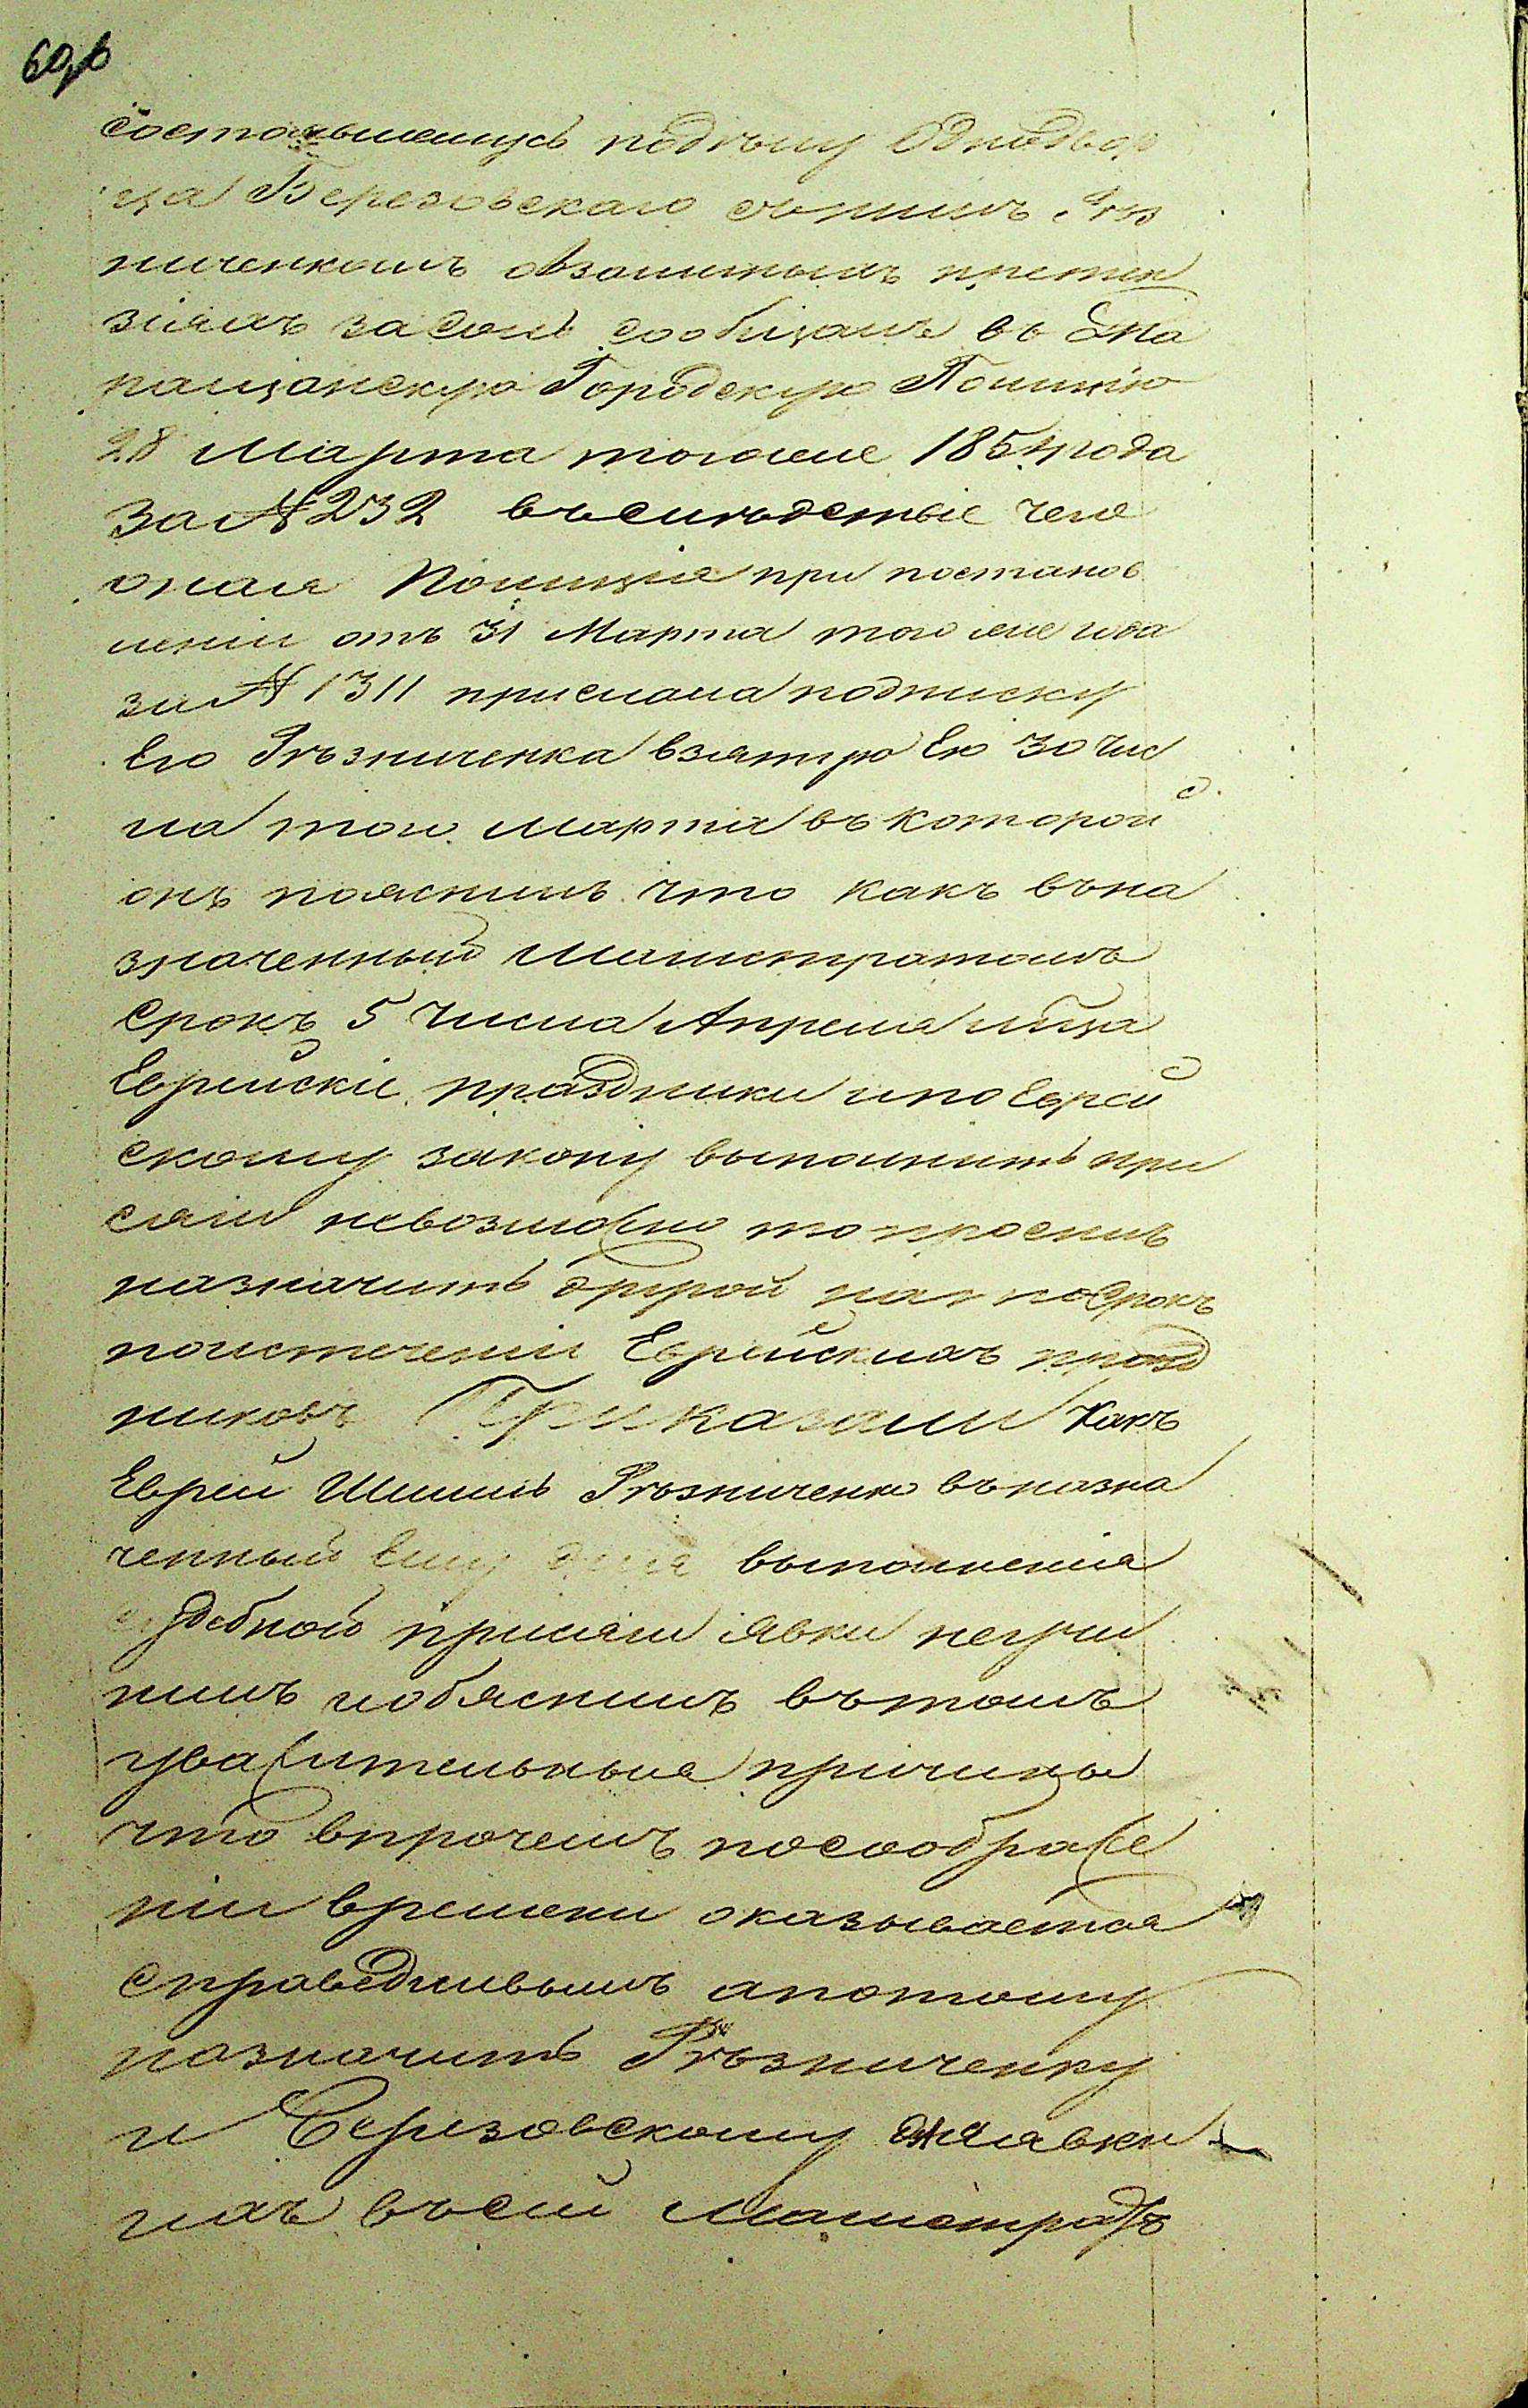 69об
состоявшемуся подѣлу Однодвор
ца Березовскаго съ Рѣз
ниченкомъ овзаимныхъ претен
зіяхъ засоль сообщалъ въ
ращанскую Городскую Полицію
28 Марта тогоже 1854 года
за № 232 въслѣдствіе чего
оная Полиція при постанов
леніи отъ 31 Марта того же года
за № 1311 прислала подписку
Его Рѣзниченка взятую Ею 30 чис
ла того Марта въ которой
онъ пояснилъ что какъ вына
значенный Магистратомъ
срокъ 5 числа Апреля
Еврейскіе праздники ипо Еврей
скому закону выполнить при
сяги невозможно то проситъ
назначить другой на то срокъ
поистеченіи Еврейскихъ празд
никовъ Приказали какъ
Еврей Шмиль Рѣзниченко въназна
ченный ему для выполненія
судебной присяги явки неучи
нилъ иобяснилъ вътомъ
уважительныя причины
что впрочемъ посоображе
ніи времени оказывается
справедливымъ апотому
назначить Рѣзниченку
и Березовскому для явки
ихъ въсей Магистратъ